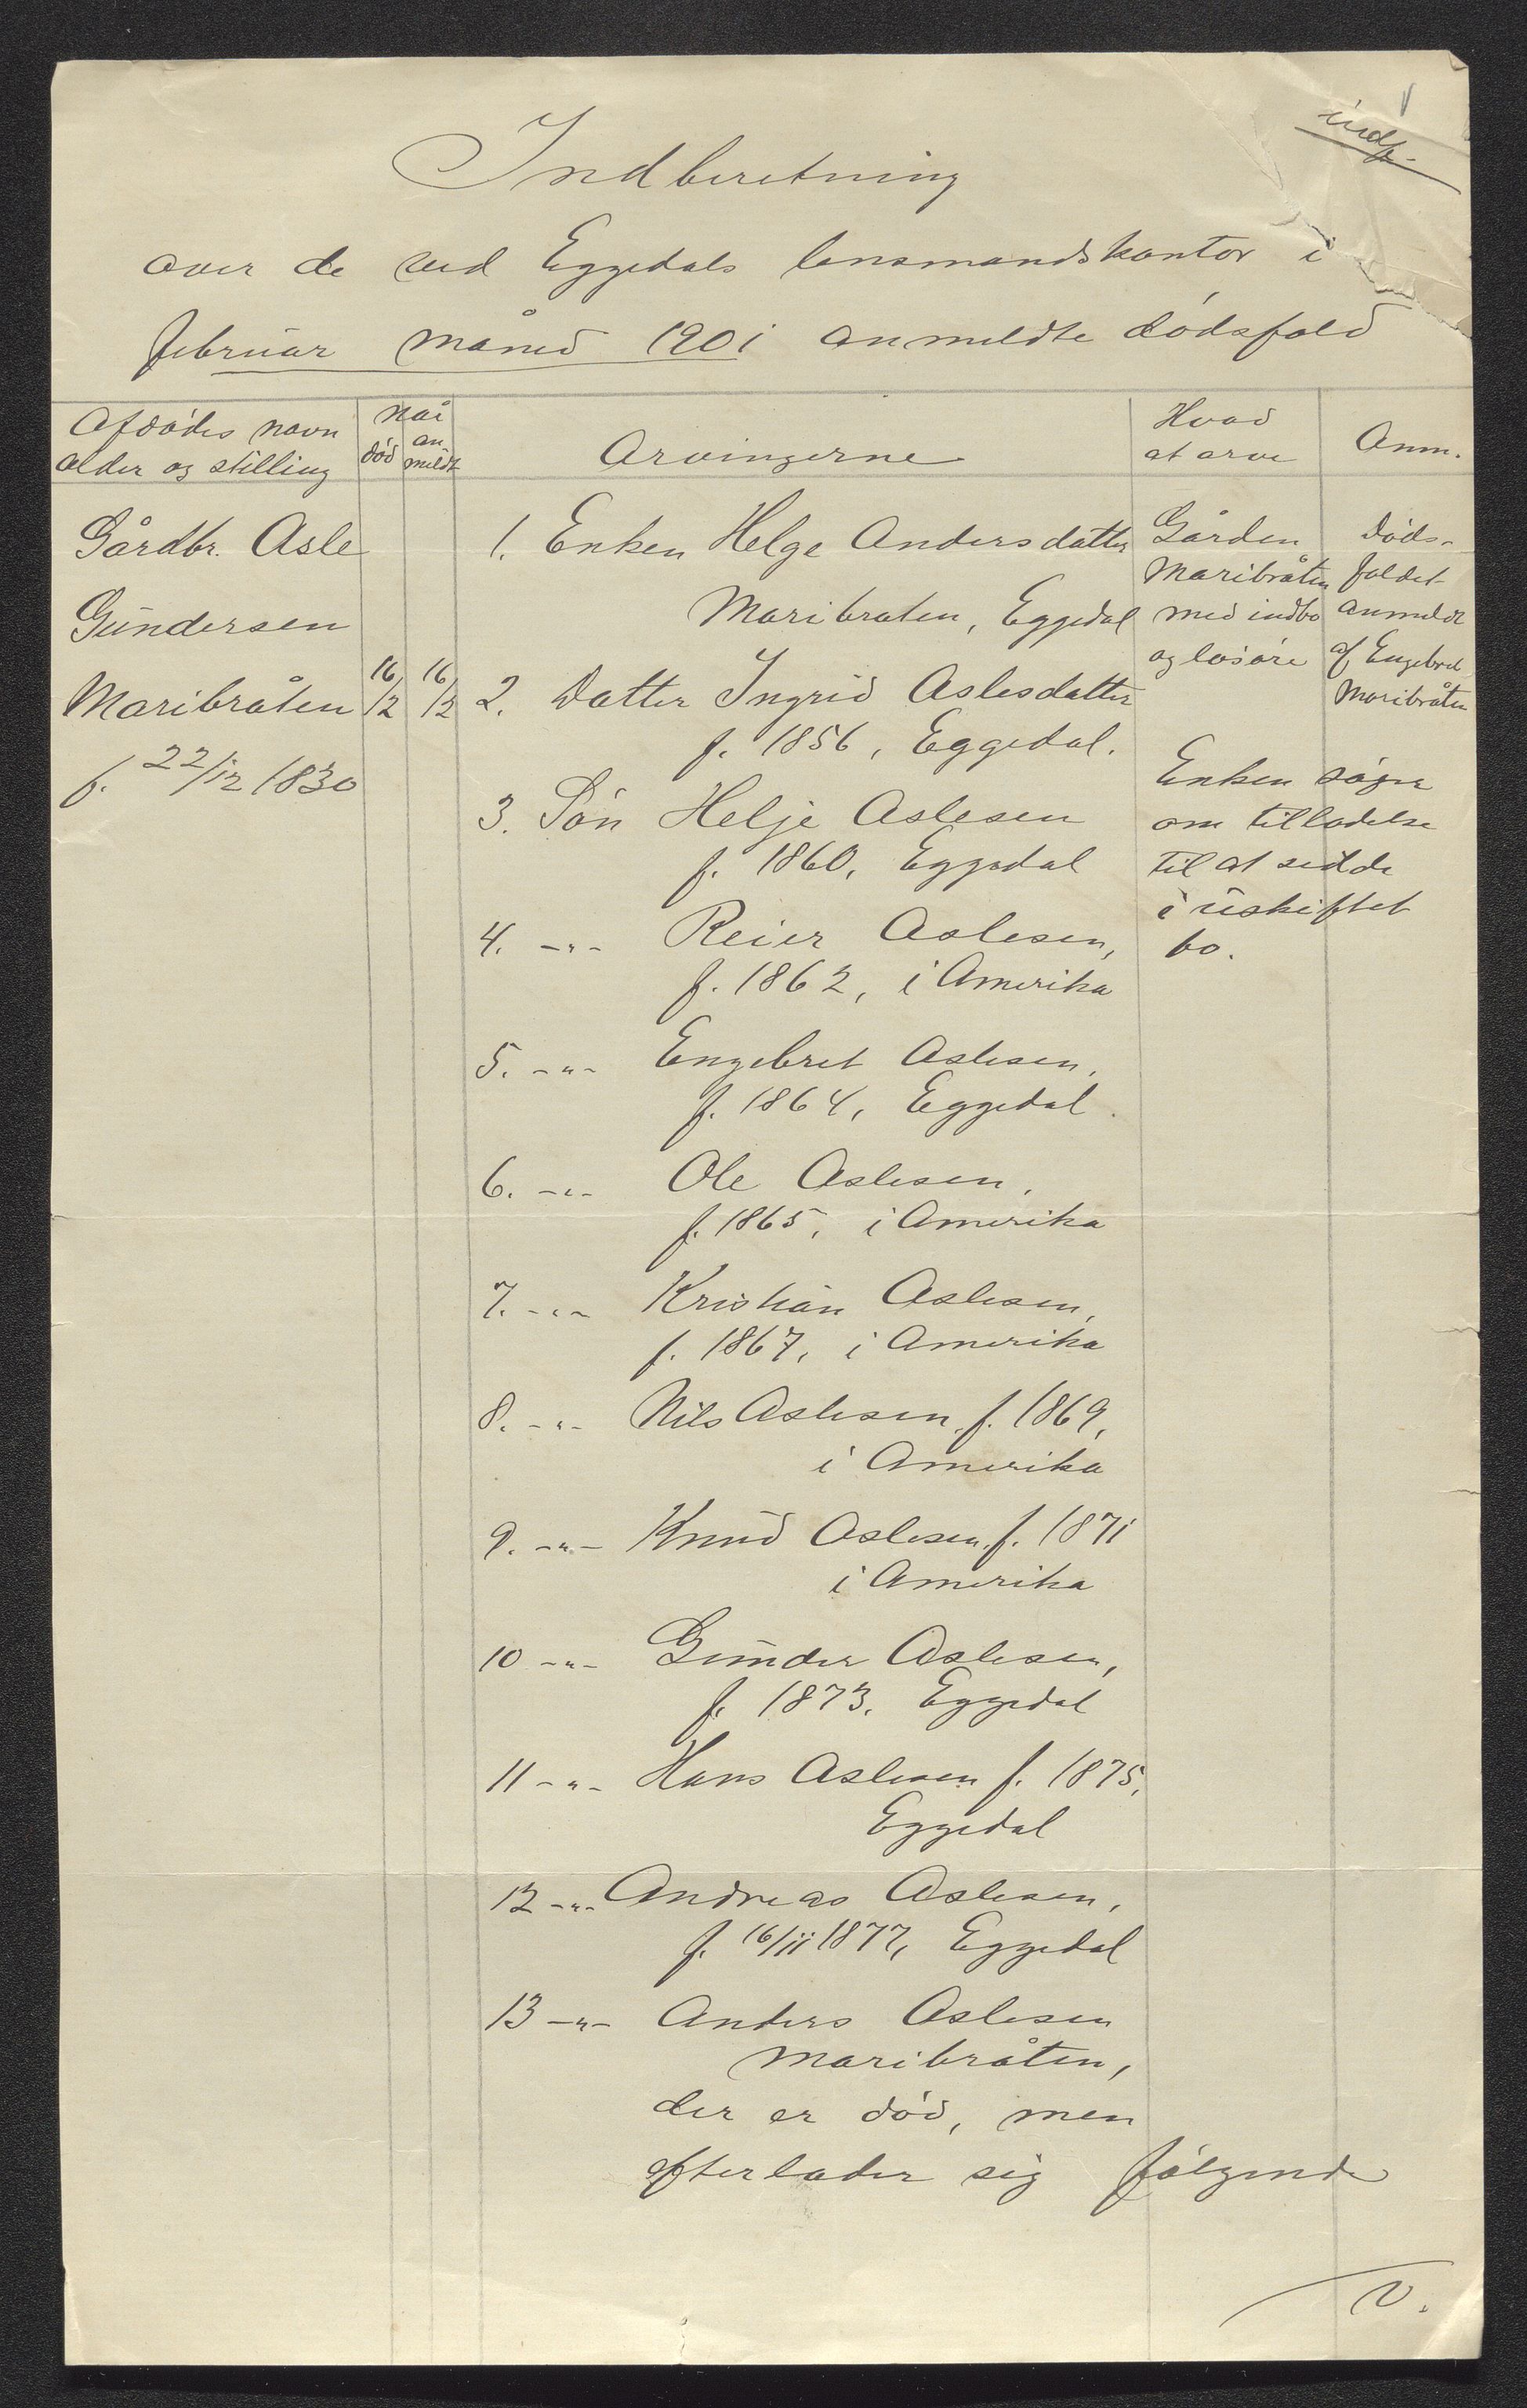 indf.
Indberetning
over de ved Eggedals lensmandskontor i
februar måned 1901 anmeldte dödsfald
Afdödes navn
alder og stilling
når
död
an-
meldt
Arvingerne
Hvad
at arve
Anm.
Gårdbr. Asle
Gundersen
Maribråten
f. 22/12 1830
16/2
16/2
1. Enken Helge Andersdatter
Maribraten, Eggedal
2. Datter Ingrid Aslesdatter
f. 1856, Eggedal.
3. Sön Helje Aslesen
f. 1860, Eggedal
4. -"- Reier Aslesen,
f. 1862, i Amerika
5. -"- Engebret Aslesen,
f. 1864, Eggedal.
6. -"- Ole Aslesen,
f. 1865, i Amerika
7. -"- Kristian Aslesen,
f. 1867, i Amerika
8. -"- Nils Aslesen, f. 1869,
i Amerika
9. -"- Knud Aslesen, f. 1871
i Amerika
10 -"- Gunder Aslesen,
f. 1873, Eggedal
11 -"- Hans Aslesen f. 1875,
Eggedal
12 -"- Andreas Aslesen,
f. 16/11 1877, Eggedal
13 -"- Anders Aslesen
Maribråten,
der er död, men
efterlader sig fölgende
Gården
Maribråten
med indbo
og lösöre
Döds-
faldet
anmeldt
af Engebret
Maribråten
Enken söger
om tilladelse
til at sidde
i uskiftet
bo.
V.